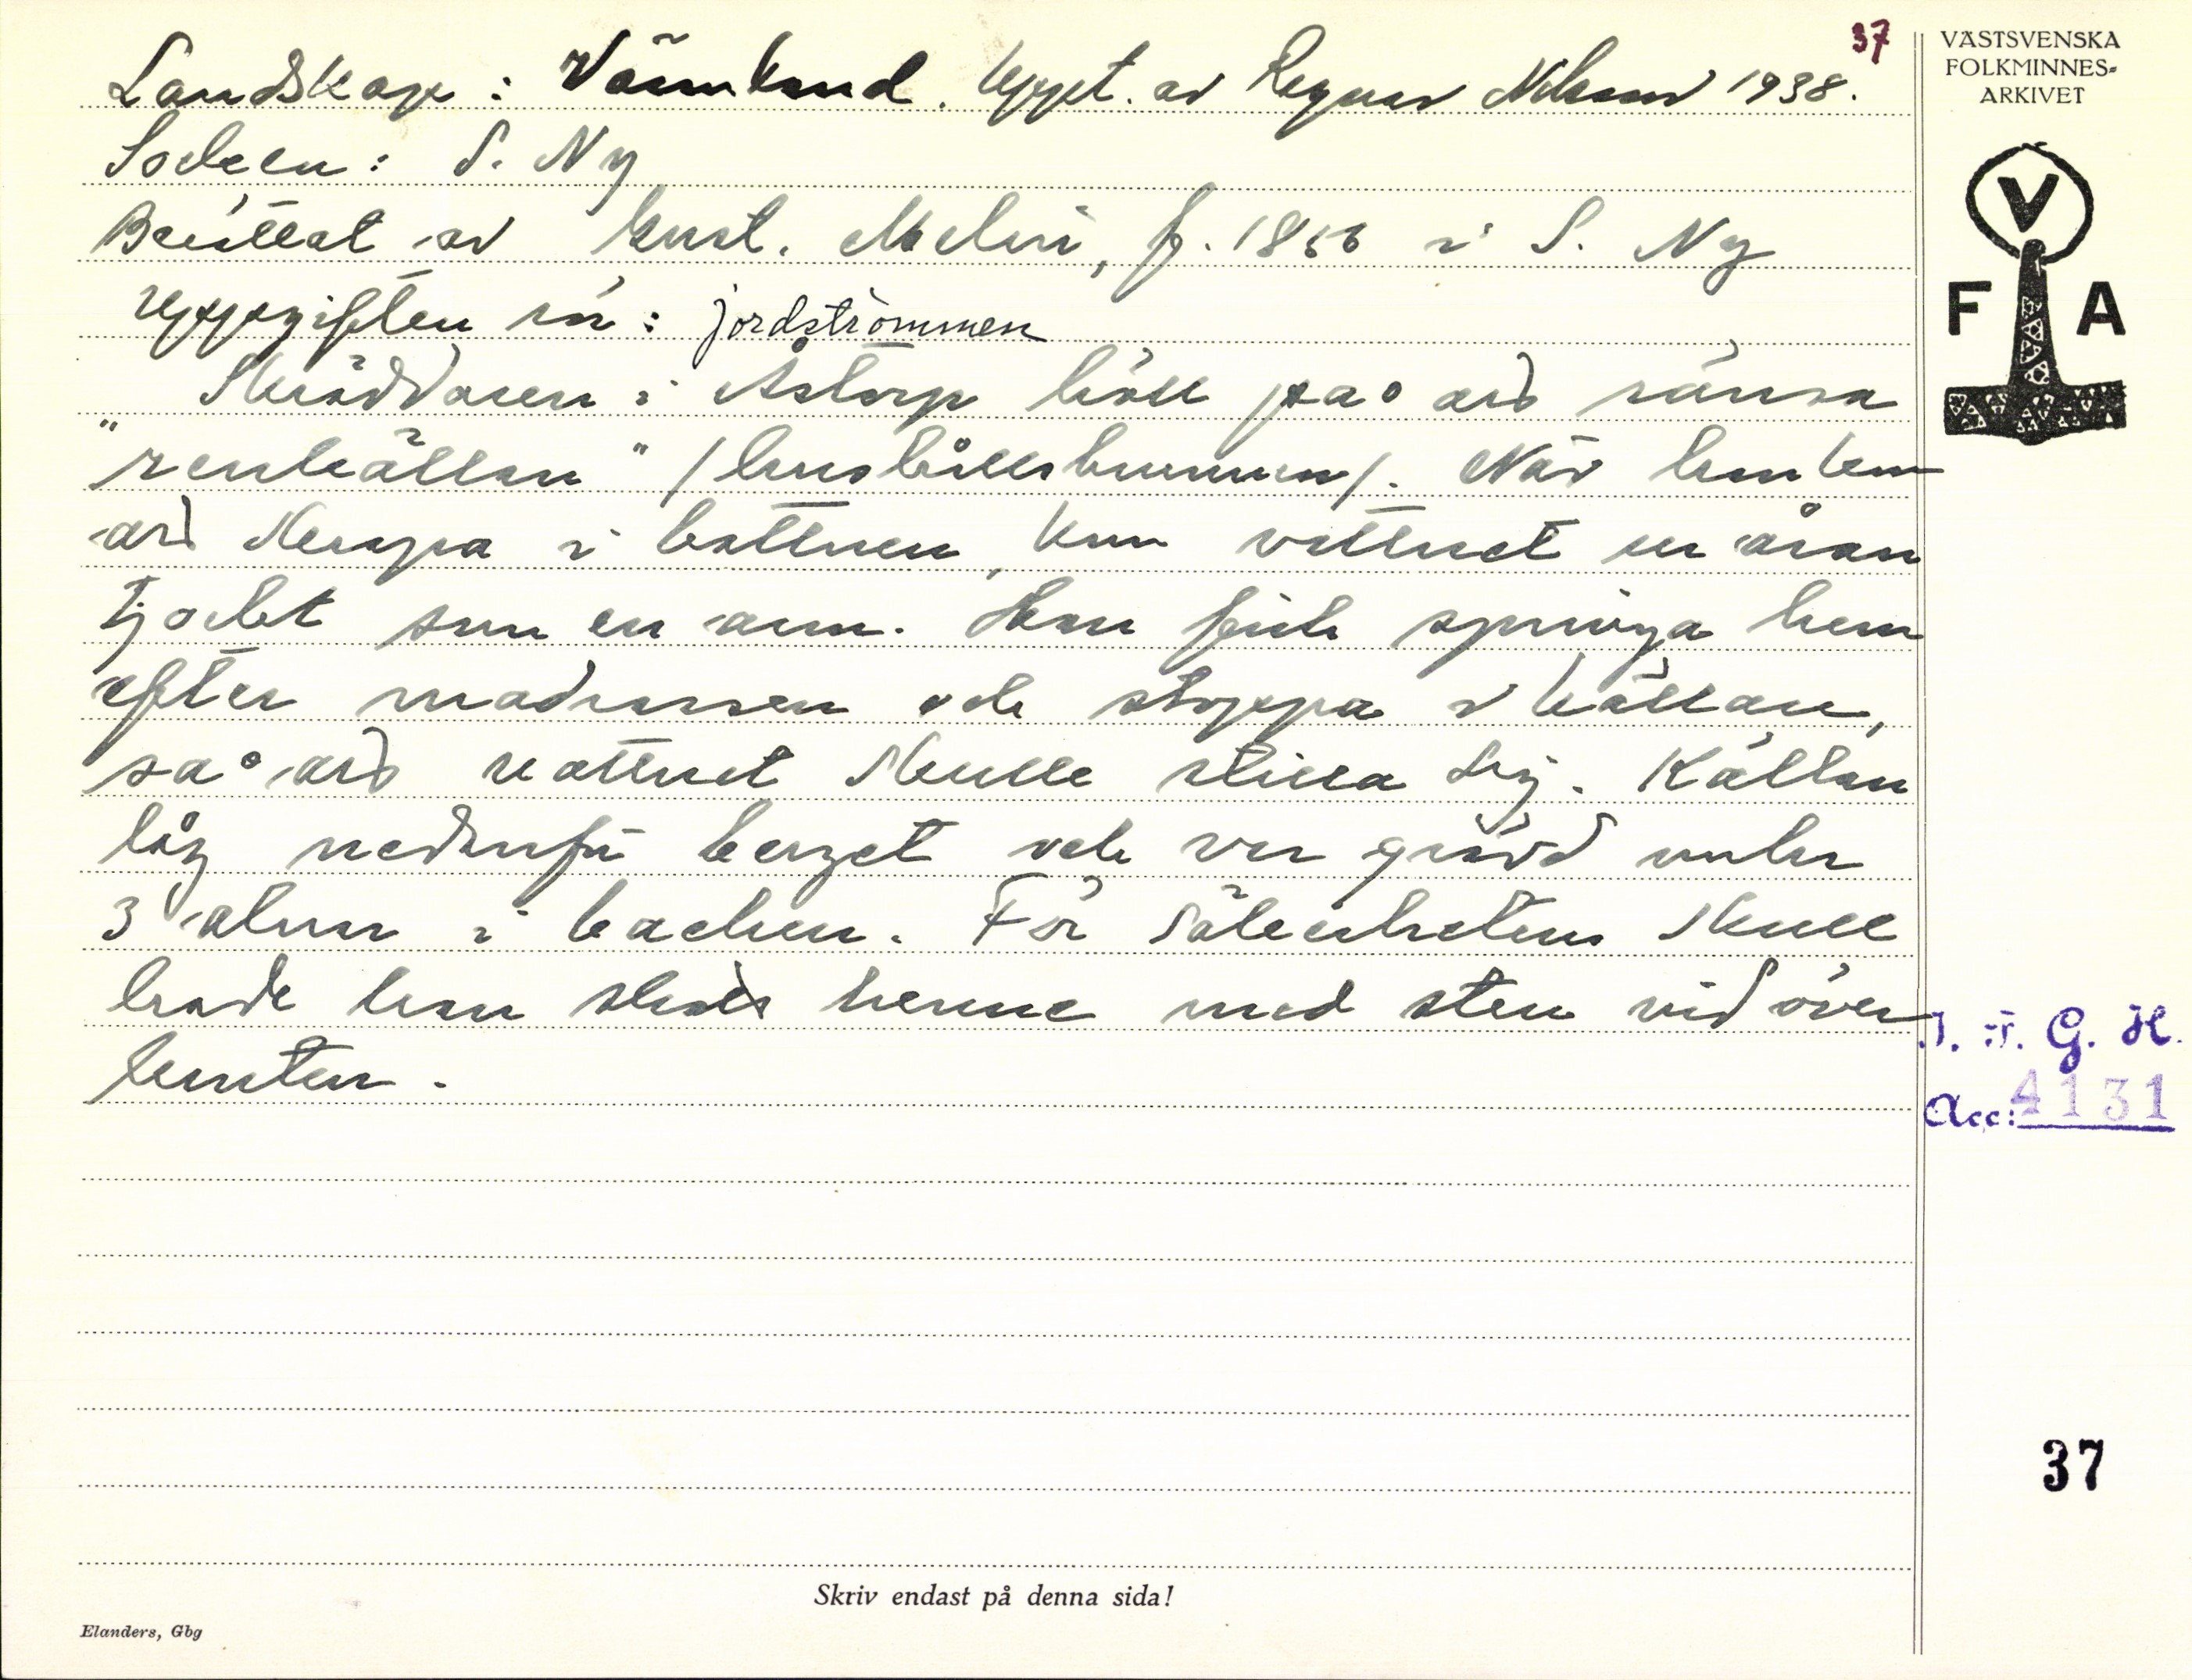 37
Landskap: Värmland. Uppt. av Ragnar Nilsson 1938.
VÄSTSVENSKA
FOLKMINNES-
ARKIVET
Socken: S. Ny
Berättat av Gust. Melin, f. 1856 i S. Ny
V
F A
Uppgiften rör: jordströmmen
Skräddaren i Åstorp höll på att ränsa
"renkällan" /hushållsbrunnen/. När han kom
att skrapa i bottnen, kom vattnet ur åran
tjockt som en arm. Han fick springa hem
efter madrassen och stoppa i källan,
så att vattnet skulle stilla sig. Källan
låg nedanför berget och var grävd under
3 alnar i backen. För säkerhetens skull
hade han skott henne med sten vid över
kanten.
I. F. G. H.
Acc: 4131
37
Skriv endast på denna sida!
Elanders, Gbg